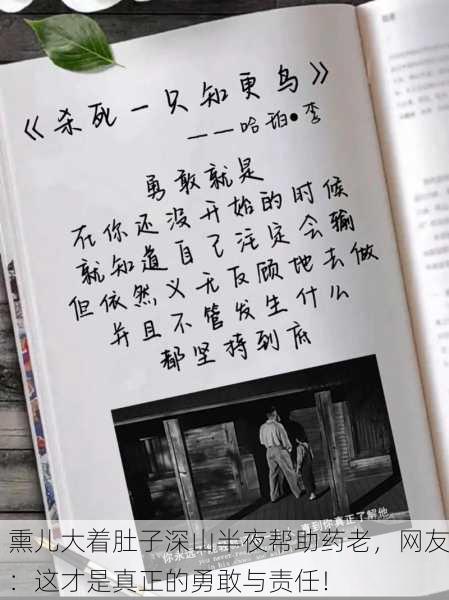 《杀死一只知更鸟》
——哈珀·李
勇敢就是
在你还没开始的时候
就知道自己注定会输
但依然义无反顾地去做
并且不管发生什么
都坚持到底
直到你真正了解他
熏儿大着肚子深山半夜帮助药老，网友
：这才是真正的勇敢与责任！